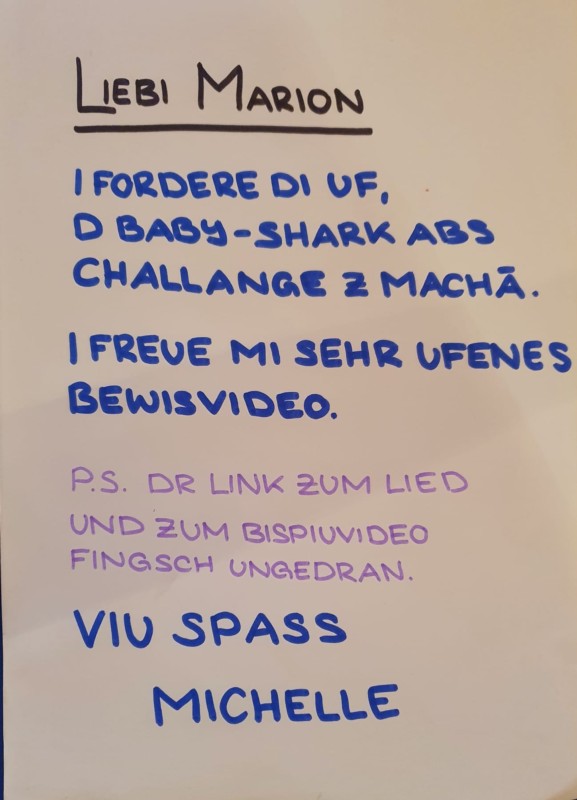 LIEBI MARION
I FORDERE DI UF,
D BABY-SHARK ABS
CHALLANGE Z MACHĀ.
I FREUE MI SEHR UFENES
BEWISVIDEO.
P.S. DR LINK ZUM LIED
UND ZUM BISPIUVIDEO
FINGSCH UNGEDRAN.
VIU SPASS
MICHELLE